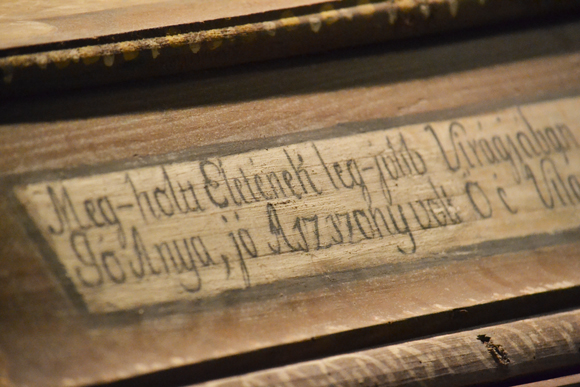 Meg-holt Eletének leg-jobb Virágjában
Jó Anya, jó Aszszony volt Ő é Vilá